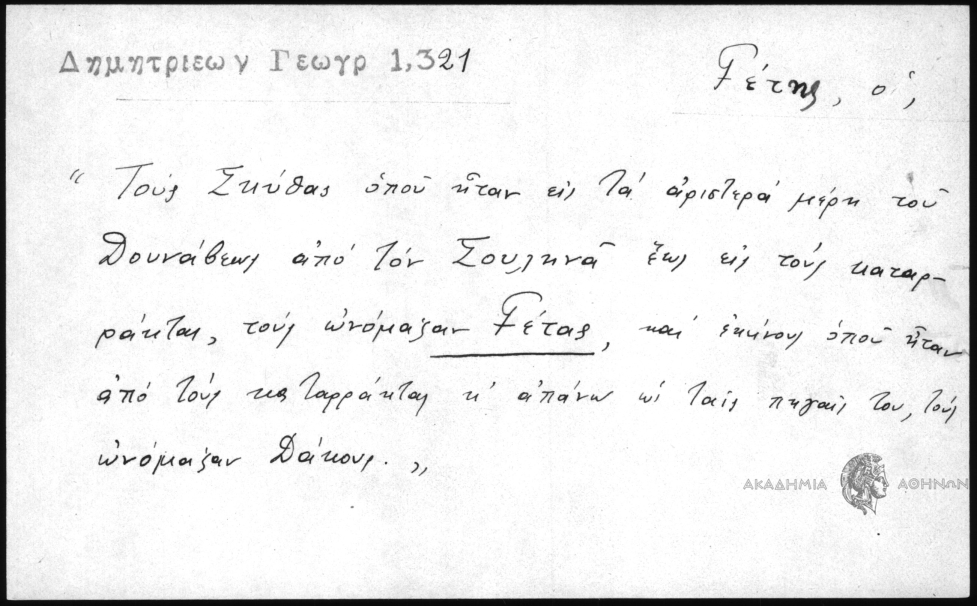 Δημητριεων Γεωγρ 1,321
Γέτης, ὁ,
“Τούς Σκύθας ὁποῦ ἦταν εἰς τά ἀριστερά μέρη τοῦ
Δουνάβεως ἀπό τόν Σουληνᾶ ἕως εἰς τούς καταρ-
ράκτας, τούς ὠνόμαζαν Γέτας, καί ἐκείνους ὁποῦ ἦταν
ἀπό τούς καταρράκτας κ' ἀπάνω ὡς ταίς πηγαίς του, τούς
ὠνόμαζαν Δάκους.„
ΑΚΑΔΗΜΙΑ ΑΘΗΝΩΝ